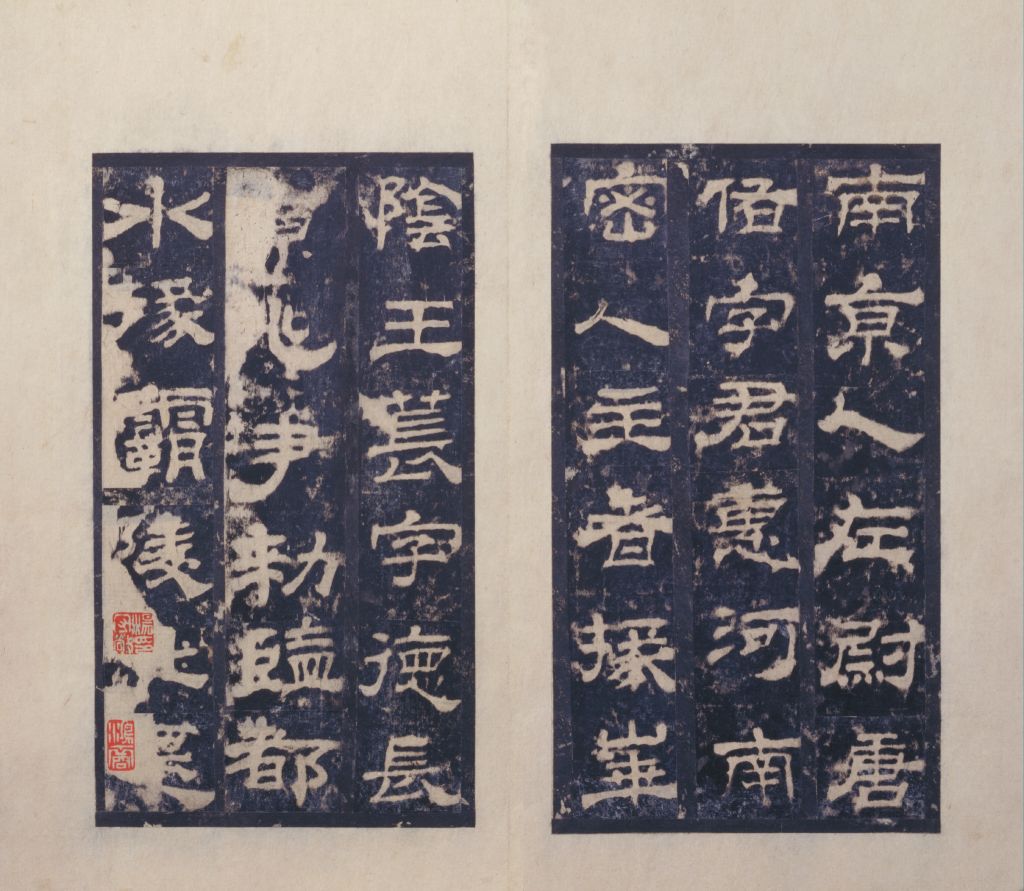 南京人左尉唐
佑字君惠河南
密人主者掾華
陰王萇字德長
京兆尹勑監都
水掾霸陵杜遷